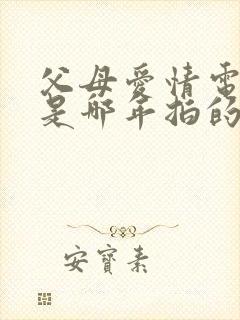 父母愛情電
是哪年拍的
安寶素